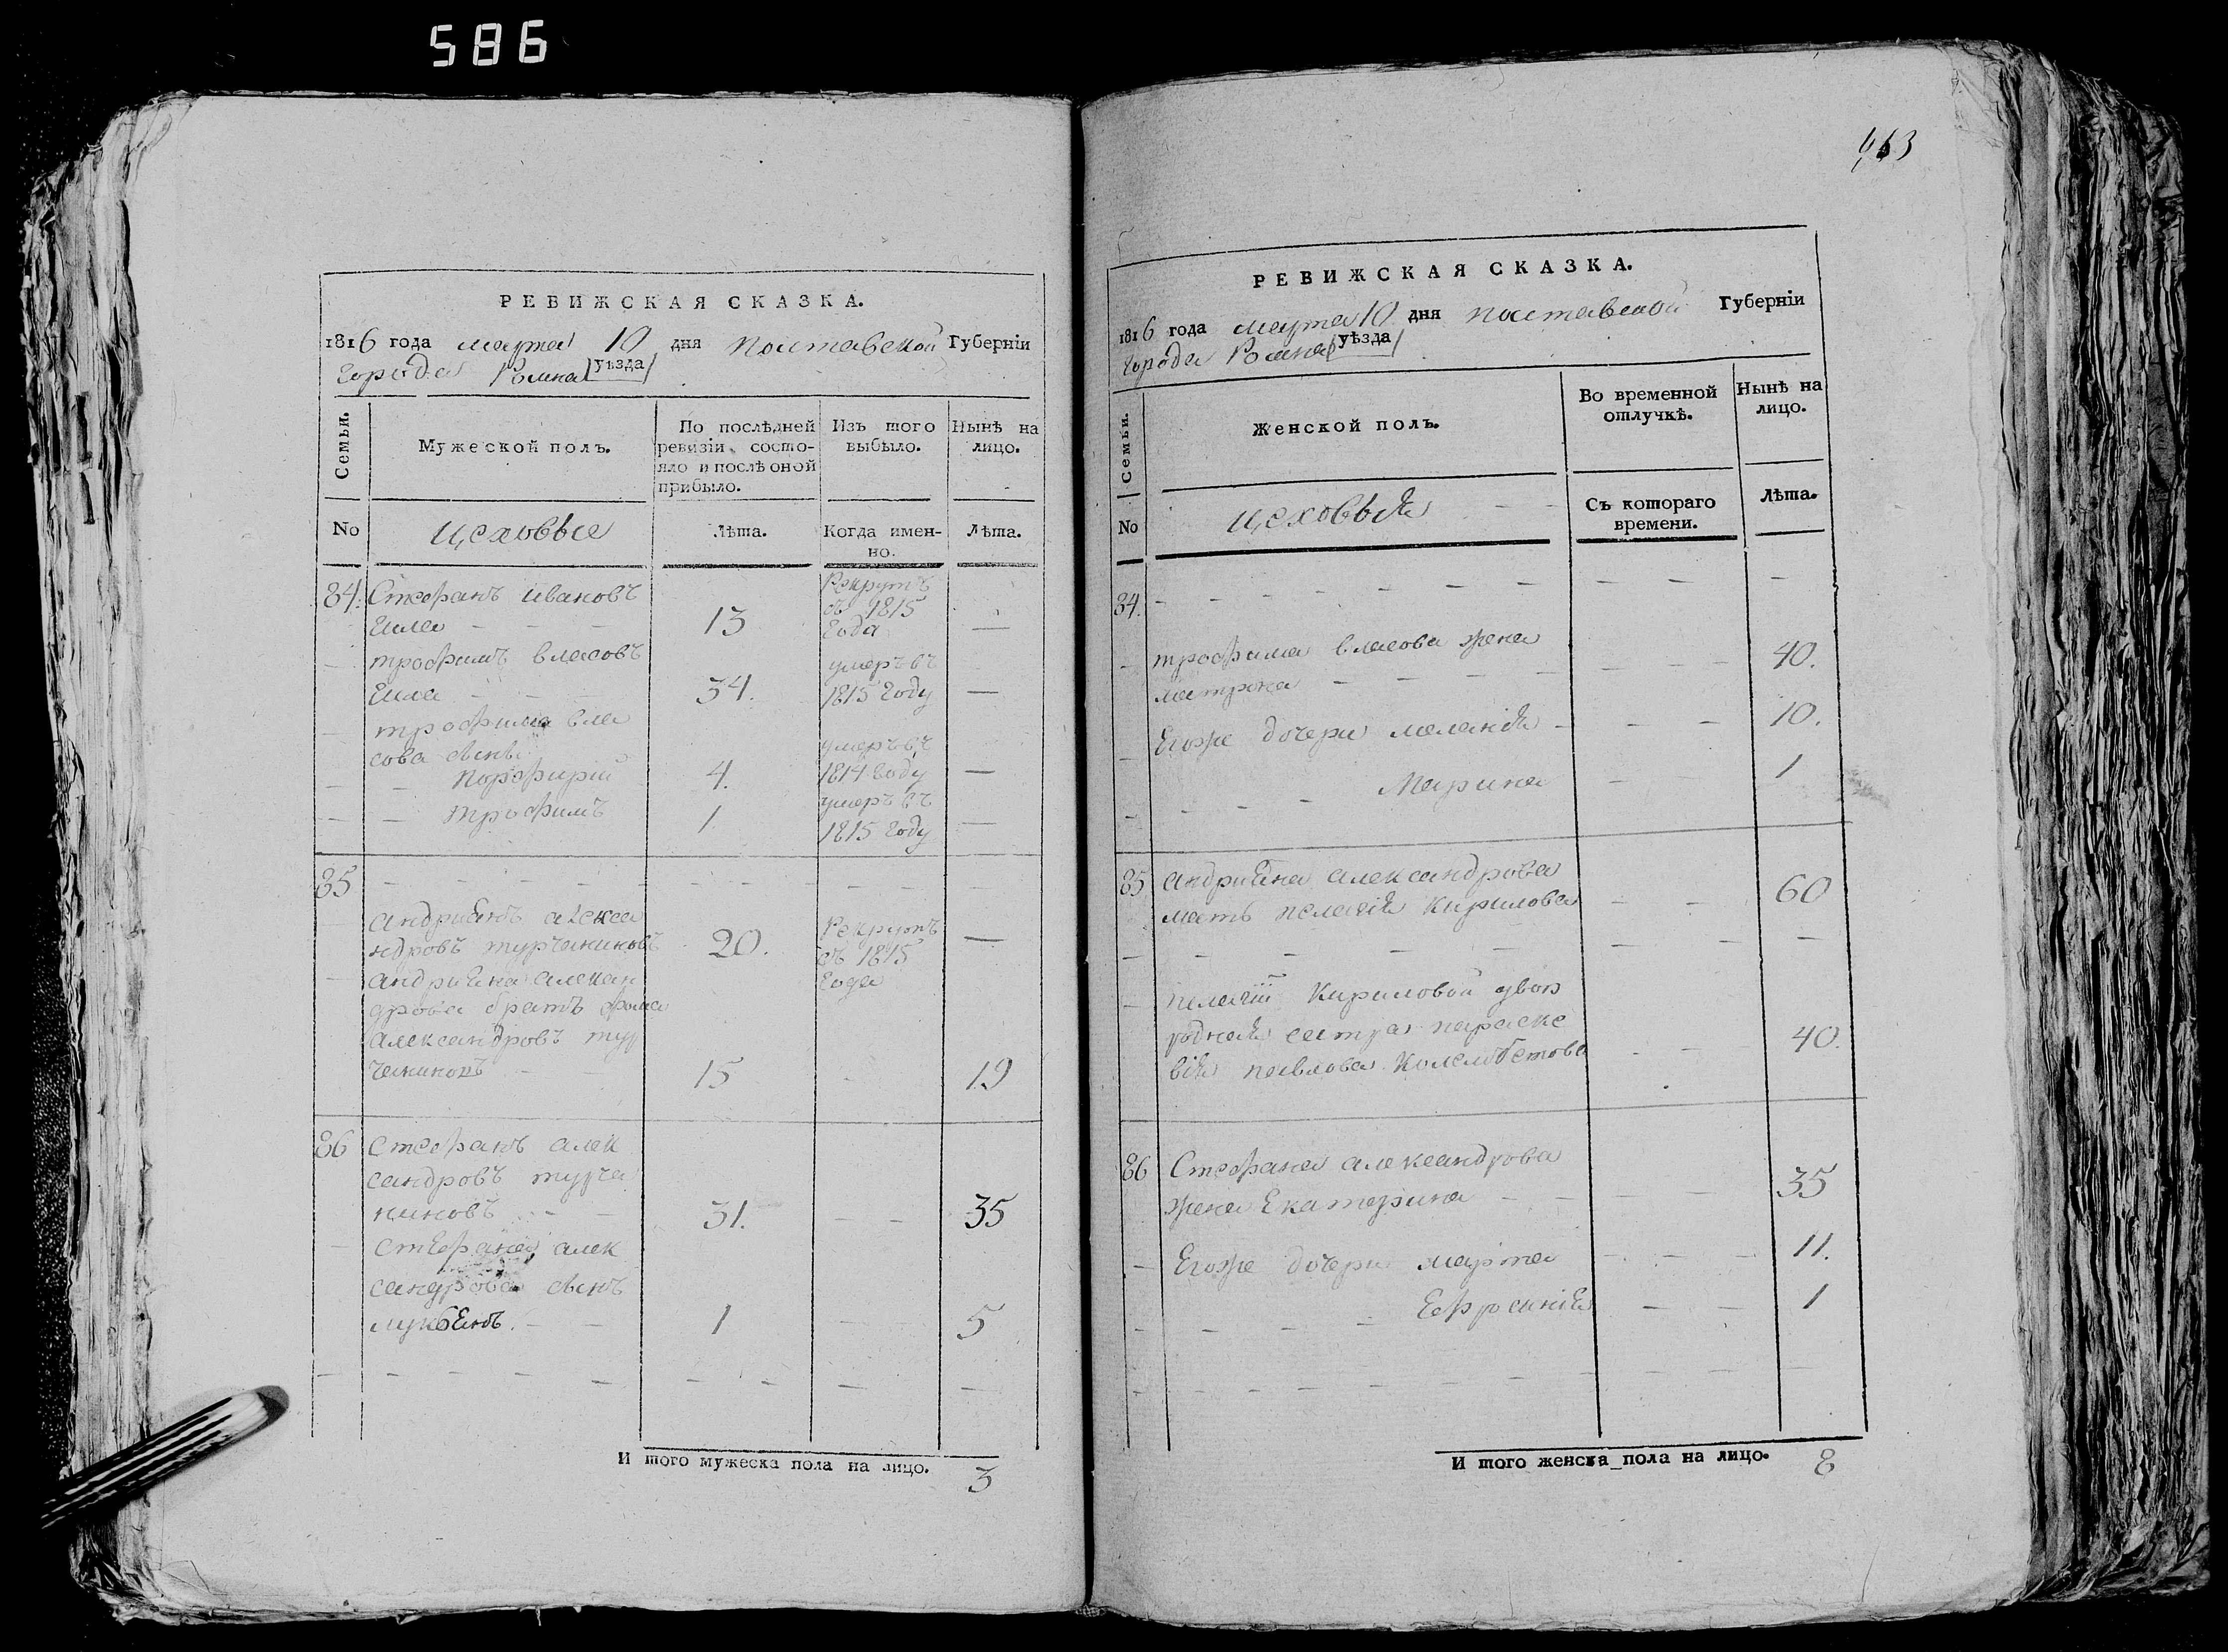 586
РЕВИЖСКАЯ СКАЗКА.
1816 года марта 10 дня Полтавской Губерніи
города Ромна уѣзда
Семьи.
Мужеской полъ.
По послѣдней ревизіи состо-
яло и послѣ оной
прибыло.
Изъ того
выбыло.
Нынѣ на
лицо.
No
цеховые
Лѣта.
Когда имен-
но.
Лѣта.
84. Стефанъ Ивановъ
13
Рекрутъ
съ 1815
года —
трофимъ власовъ
34.
умеръ въ
1815 году —
трофима вла
сова сынъ
порфирій 4.
умеръ въ
1814 году —
трофимъ 1.
умеръ въ
1815 году —
85
андриянъ алекса
ндровъ турчениновъ 20.
Рекрутъ
съ 1815
года —
андрияна алексан
дрова братъ фома
александровъ тур
чениновъ 15 19
86 стефанъ алек
сандровъ турча
ниновъ 31. 35
стефана алек
сандрова сынъ
лукбянъ. 1 5
И того мужеска пола на лицо. 3
463
РЕВИЖСКАЯ СКАЗКА.
1816 года марта 10 дня полтавской Губерніи
города Ромна уѣзда
Семьи.
Женской полъ.
Во временной
отлучкѣ.
Нынѣ на
лицо.
No
цеховыя
Съ котораго
времени.
Лѣта.
84.
трофима власова жена
матрона 40.
Егоже дочери маланія 10.
Марина 1
85 андрияна александрова
мать пелагія Кирилова 60
пелагіи Кириловой двою
родная сестра параске
вія павлова 40.
86 Стефана александрова
жена Екатерина 35
Егоже дочери марта 11.
Ефросинія 1
И того женска пола на лицо. 8